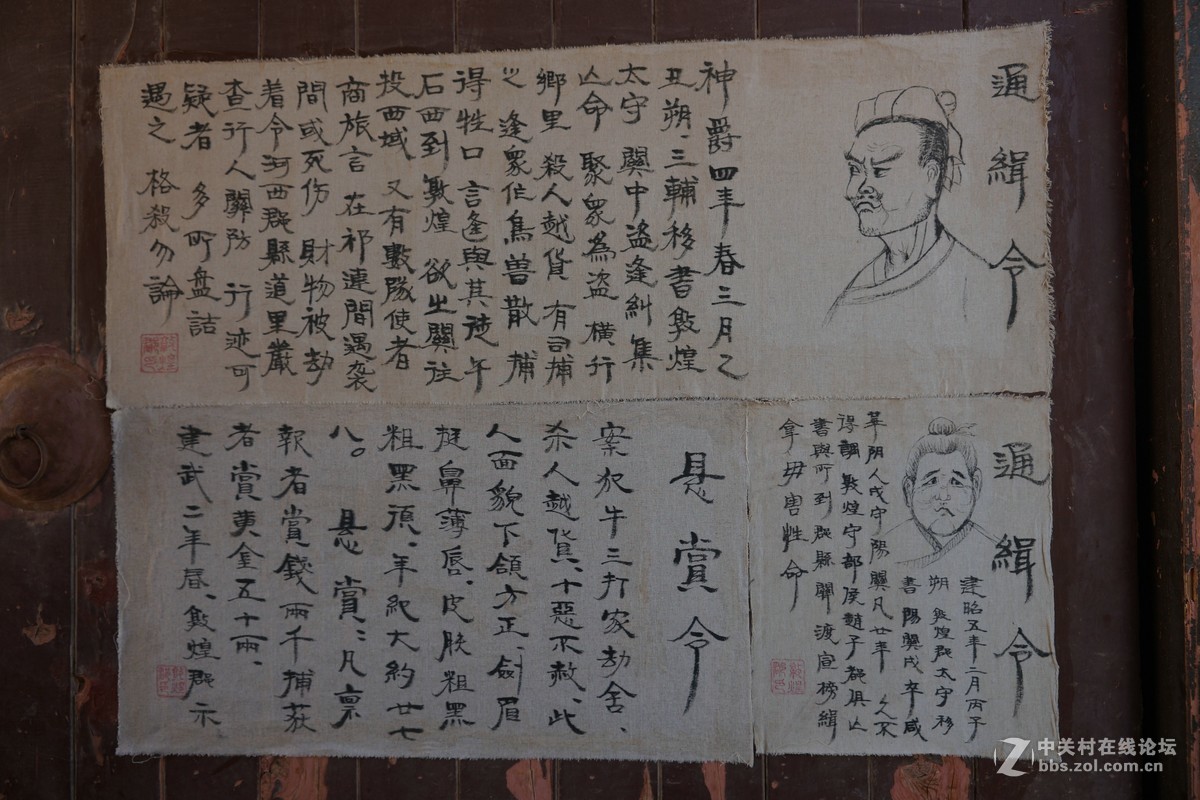 通緝令
神爵四年春三月乙
丑朔三輔移書敦煌
太守 關中盜逢糾集
亾命 聚衆為盜 橫行
鄉里 殺人越貨 有司捕
之 逢衆作鳥兽散 捕
得牲口 言逢與其徒午
石西到敦煌 欲出關往
投西域 又有數隊使者
商旅言 在祁連間遇襲
間或死伤 財物被劫
着令河西郡縣道里嚴
查行人關防 行迹可
疑者 多所盤詰
遇之 格殺勿論
通緝令
建昭五年二月丙子
朔 敦煌郡太守移
書陽關戍卒咸
苹阴人戍守陽關凡廿年 久不
得調 敦煌守部侯趙子都俱亾
書與所到郡縣關渡宣榜緝
拿毋害性命
悬赏令
案犯牛三打家劫舍、
杀人越貨、十惡不赦、此
人面貌下頜方正、劍眉
挺鼻薄唇、皮肤粗黑
粗黑須、年紀大約廿七
八。悬赏：凡禀
報者賞錢兩千捕获
者賞黃金五十兩、
建武二年春、敦煌郡示
中关村在线论坛
bbs.zol.com.cn